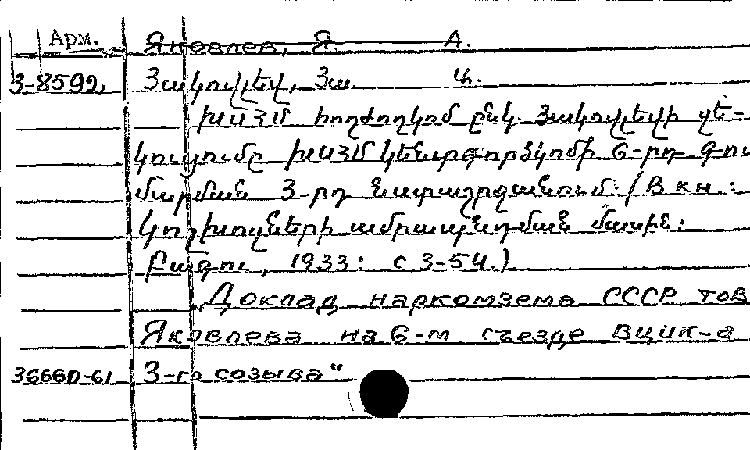 Арм. Яковлев, Я. А.
3-8592, Յակովլեվ, Յա. Ա.
ԽՍՀՄ հողժողկոմ ընկ. Յակովլեվի զե-
կուցումը ԽՍՀՄ կենտգործկոմի 6-րդ գու-
մարման 3-րդ նստաշրջանում: /В кн.:
կոլխոզների ամրապնդման մասին:
Բագու, 1933: с 3-54.)
Доклад наркомзема СССР тов
Яковлева на 6-м съезде ВЦИК-а
36660-61 3-го созыва"